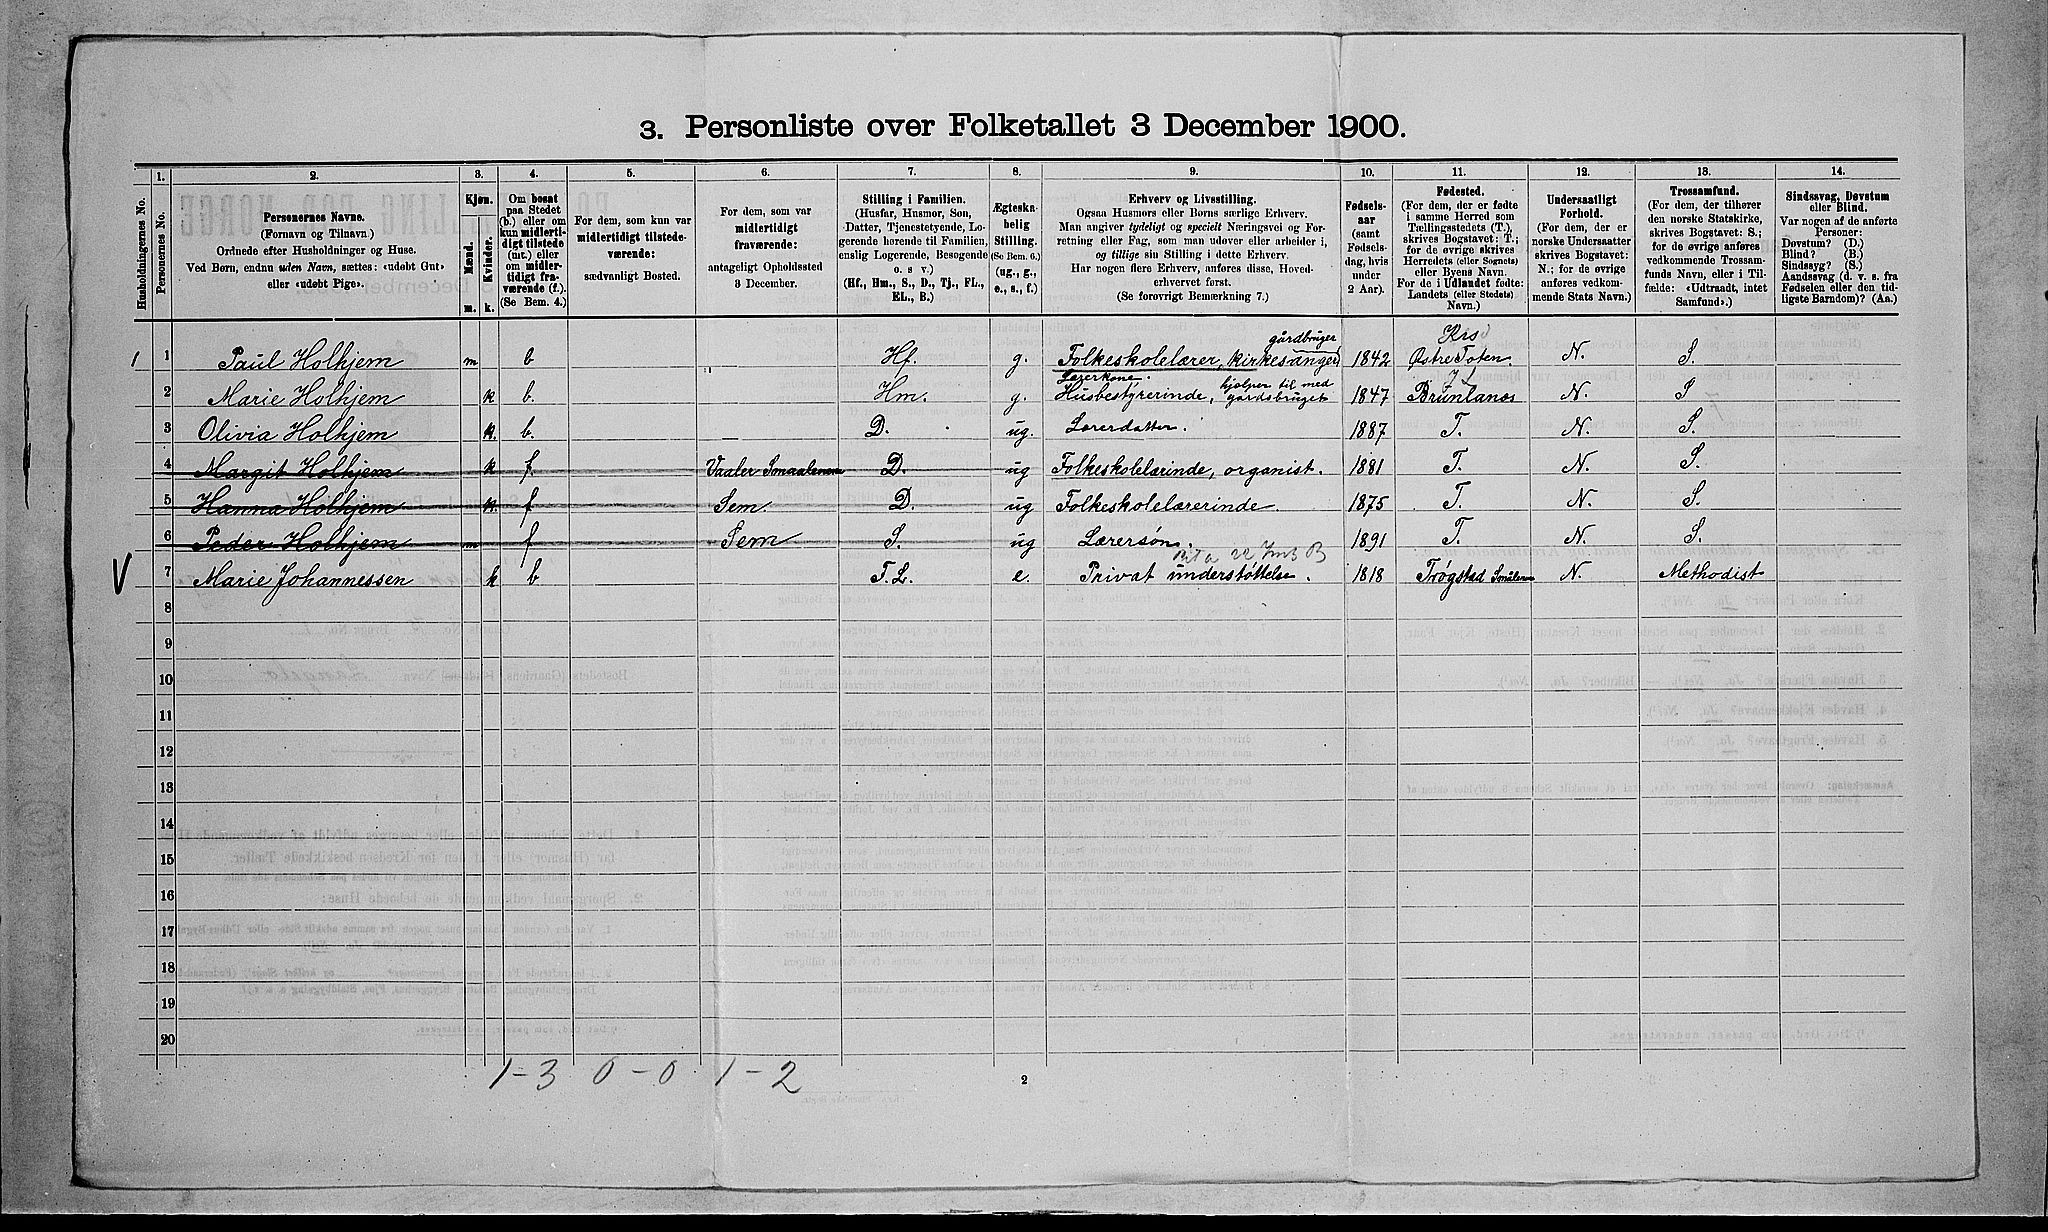 3. Personliste over Folketallet 3 December 1900.
1. 2. 3. 4. 5. 6. 7. 8. 9. 10. 11. 12. 13. 14.
Husholdningernes No.
Personernes No.
Personernes Navne.
(Fornavn og Tilnavn.)
Ordnede efter Husholdninger og Huse.
Ved Børn, endnu uden Navn, sættes: «udøbt Gut»
eller «udøbt Pige».
Kjøn.
Mænd. Kvinder.
m. k.
Om bosat
paa Stedet
(b.) eller om
kun midlerti-
digt tilstede
(mt.) eller
om midler-
tidigt fra-
værende (f.).
(Se Bem. 4.)
For dem, som kun var
midlertidigt tilstede-
værende:
sædvanligt Bosted.
For dem, som var
midlertidigt
fraværende:
antageligt Opholdssted
3 December.
Stilling i Familien.
(Husfar, Husmor, Søn,
Datter, Tjenestetyende, Lo-
gerende hørende til Familien,
enslig Logerende, Besøgende
o. s v.)
(Hf., Hm., S., D., Tj., FL.,
EL., B.)
Ægteska-
belig
Stilling.
(Se Bem. 6.)
(ug., g.,
e., s., f.)
Erhverv og Livsstilling.
Ogsaa Husmors eller Børns særlige Erhverv.
Man angiver tydeligt og specielt Næringsvei og For-
retning eller Fag, som man udøver eller arbeider i,
og tillige sin Stilling i dette Erhverv.
Har nogen flere Erhverv, anføres disse, Hoved-
erhvervet først.
(Se forøvrigt Bemærkning 7.)
Fødsels-
aar
(samt
Fødsels-
dag, hvis
under
2 Aar).
Fødested.
(For dem, der er fødte
i samme Herred som
Tællingsstedets (T.),
skrives Bogstavet: T.;
for de øvrige skrives
Herredets (eller Sognets)
eller Byens Navn.
For de i Udlandet fødte:
Landets (eller Stedets)
Navn.)
Undersaatligt
Forhold.
(For dem, der er
norske Undersaatter
skrives Bogstavet:
N.; for de øvrige
anføres vedkom-
mende Stats Navn.)
Trossamfund.
(For dem, der tilhører
den norske Statskirke,
skrives Bogstavet: S.;
for de øvrige anføres
vedkommende Trossam-
funds Navn, eller i Til-
fælde: «Udtraadt, intet
Samfund».)
Sindssvag, Døvstum
eller Blind.
Var nogen af de anførte
Personer:
Døvstum? (D.)
Blind? (B.)
Sindssyg? (S.)
Aandssvag (d. v. s. fra
Fødselen eller den tid-
ligste Barndom)? (Aa.)
gårdbruger Krs
1 1 Paul Holhjem m b Hf. g. Folkeskolelærer, kirkesanger 1842 Østre Toten. N. S.
Lærerkone. hjælper til med
2 Marie Holhjem k b. Hm. g. Husbestyrerinde, gårdsbruget 1847 Brunlanæs N. S
3 Olivia Holhjem k. b. D. ug. Lærerdatter. 1887 T. N. S.
4 Margit Holhjem k f. Vaaler Smaalenene D. ug Folkeskolelærinde, organist. 1881 T. N. S.
5 Hanna Holhjem k. f Sem. D. ug Folkeskolelærerinde. 1875 T. N. S.
6 Peder Holhjem m f Sem S. ug Lærersøn. 1891 T. N. S.
V 7 Marie Johannessen k b F.L. e. Privat understøttelse. 1818 Trøgstad Smålene N. Methodist
8
9
10
11
12
13
14
15
16
17
18
19
20
1-3 0-0 1-2
2